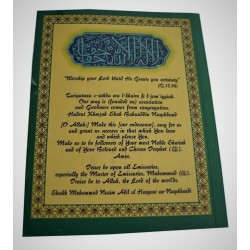 "Worship your Lord Until He Grants you certainty"
(Q.15:99)
Tariqatuna s-sohba wa l-khairu fi l-jam'iyyah.
Our way is (founded on) association
and Goodness comes from congregation.
Hadrat Khwajah Shah Bahauddin Naqshband
[O Allah!] Make this [our endeavour], easy for us
and grant us success in that which You love
and which please You.
Make us to be followers of Your most Noble Shariah
and of Your Beloved and Chosen Prophet (ﷺ).
Amin.
Peace be upon all Emissaries,
especially the Master of Emissaries, Muhammad (ﷺ).
Praise be to Allah, the Lord of the worlds.
Shaikh Muhammad Nazim Adil al Haqqani an-Naqshbandi